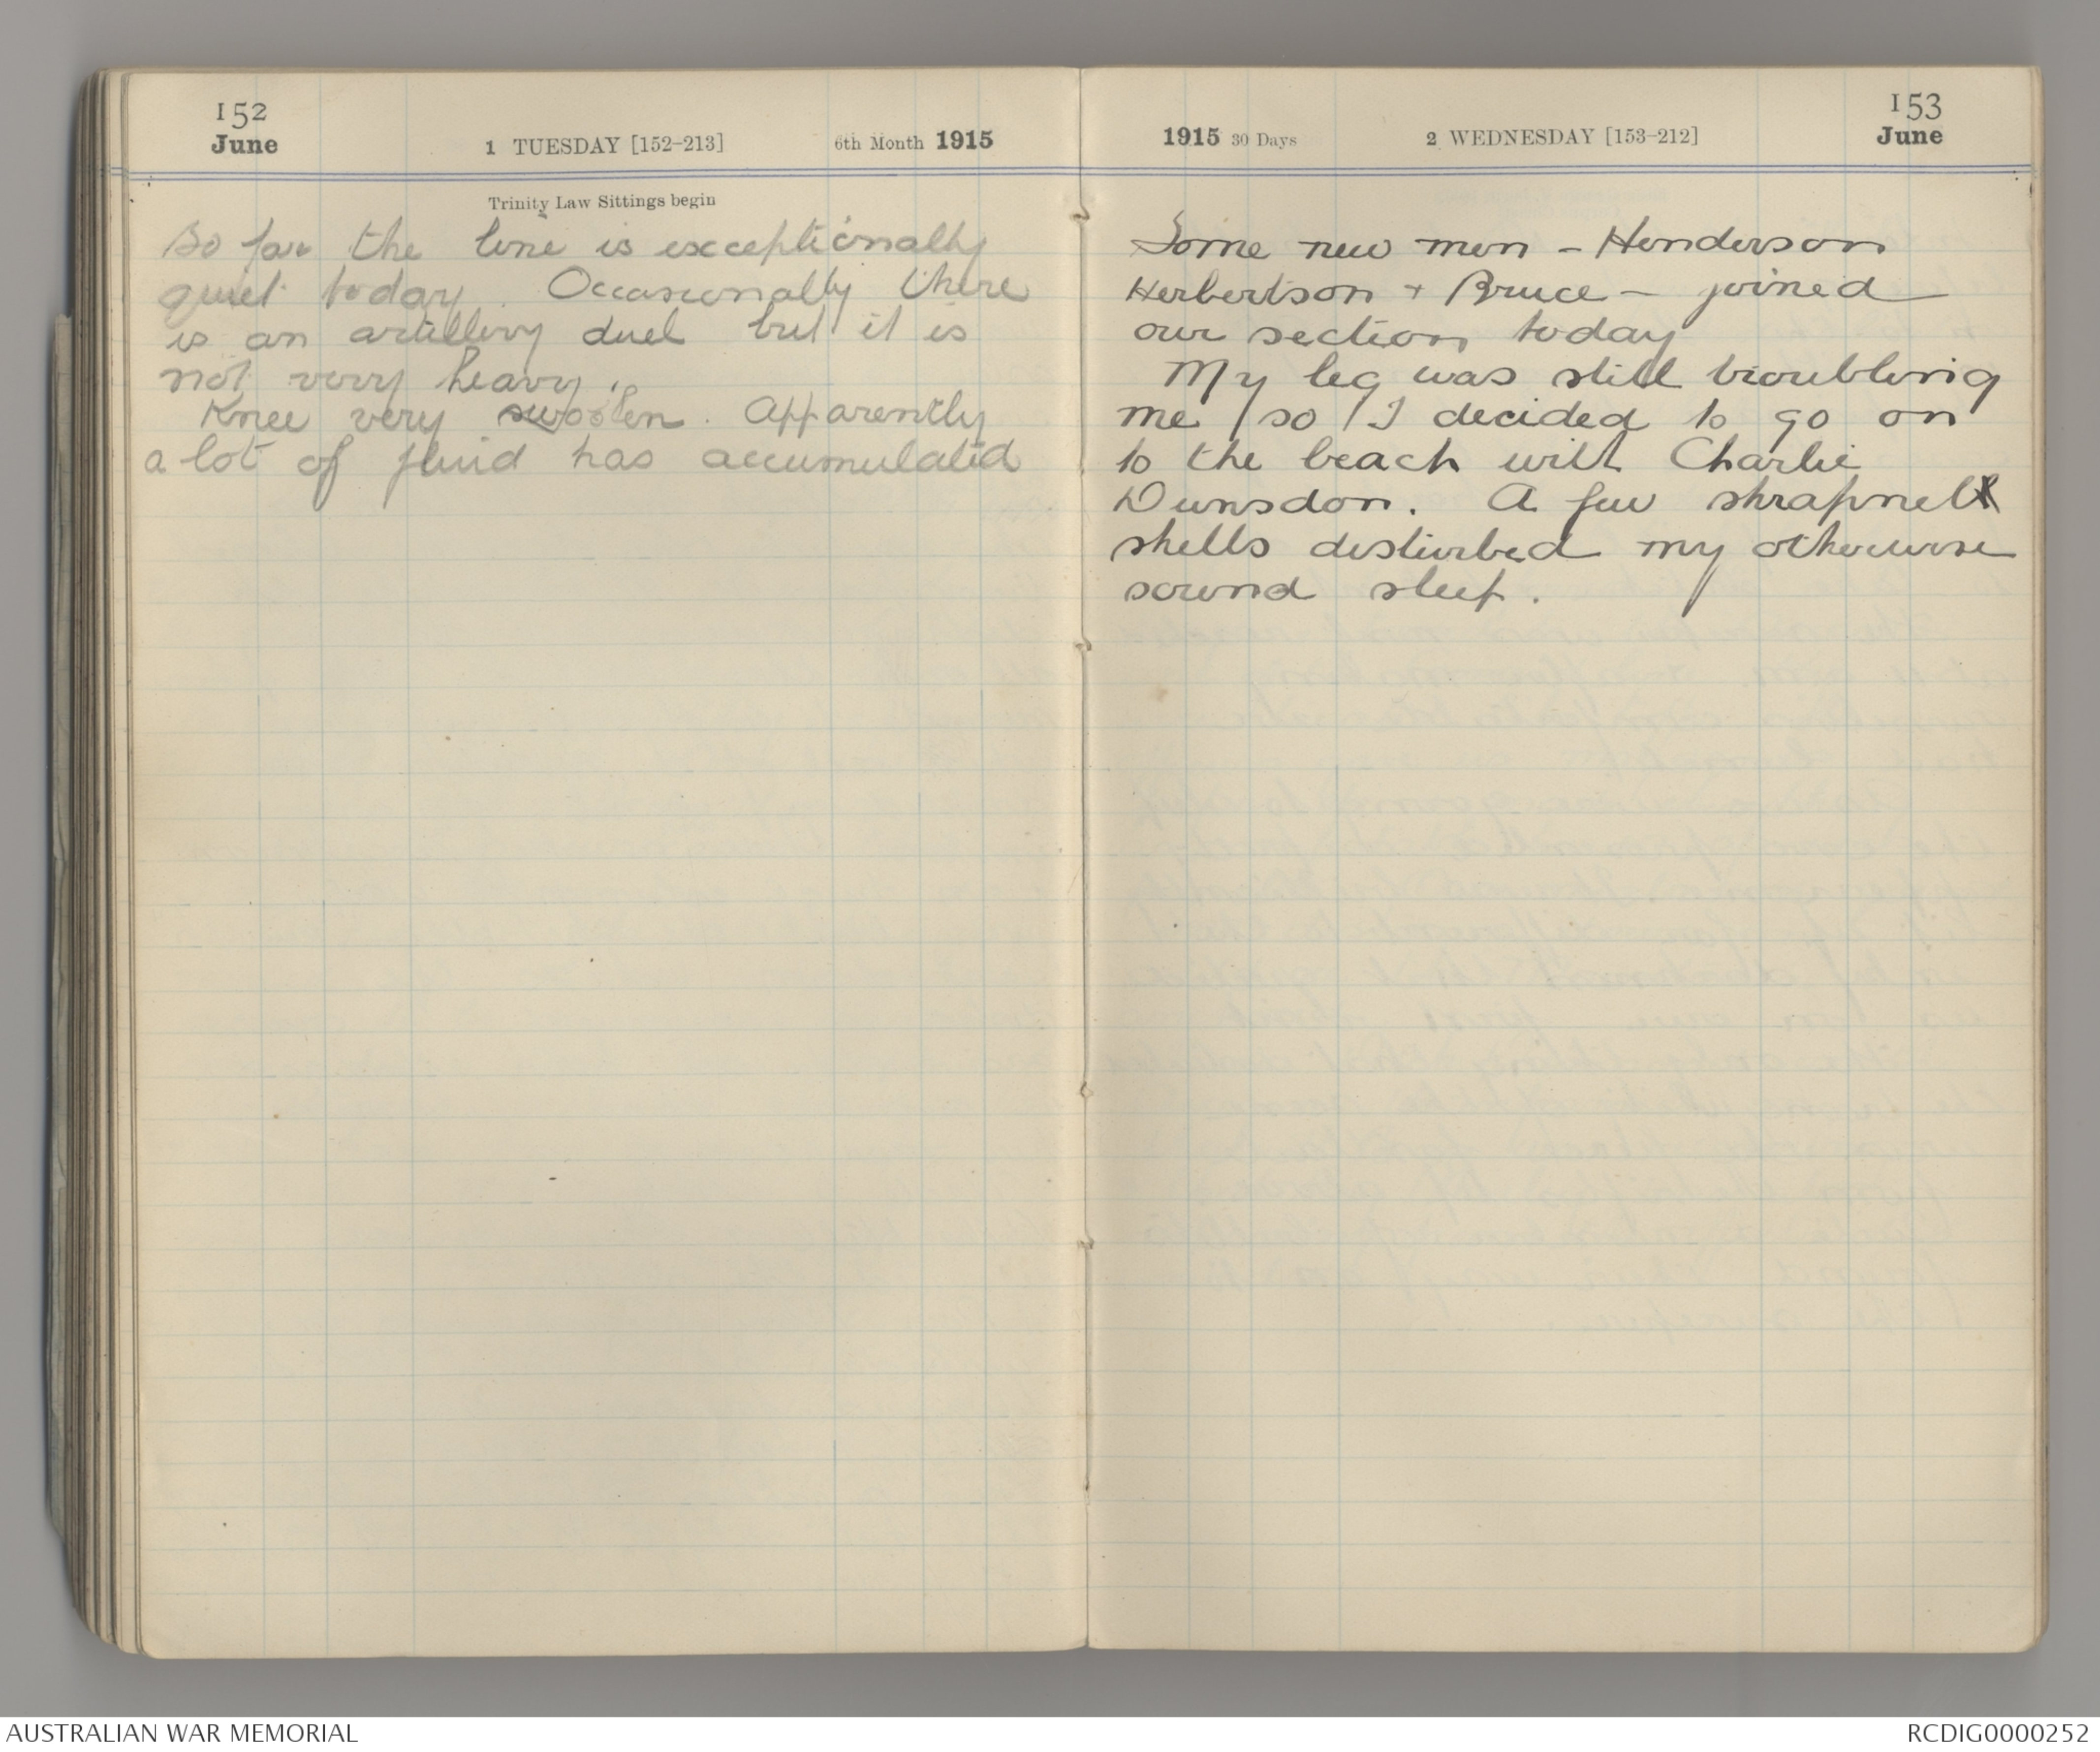 152
June
1 TUESDAY [152-213]
6th Month 1915
Trinity Law Sittings begin
So far the line is exceptionally
quiet today. Occasionally there
is an artillery duel but it is
not very heavy.
Knee very swollen. Apparently
a lot of fluid has accumulated
1915 30 Days
2 WEDNESDAY [153-212]
153
June
Some new men - Henderson
Herbertson + Bruce - joined
our section today
My leg was still troubling
me so I decided to go on
to the beach with Charlie
Dunsdon. A few shrapnel
shells disturbed my otherwise
sound sleep.
AUSTRALIAN WAR MEMORIAL
RCDIG0000252